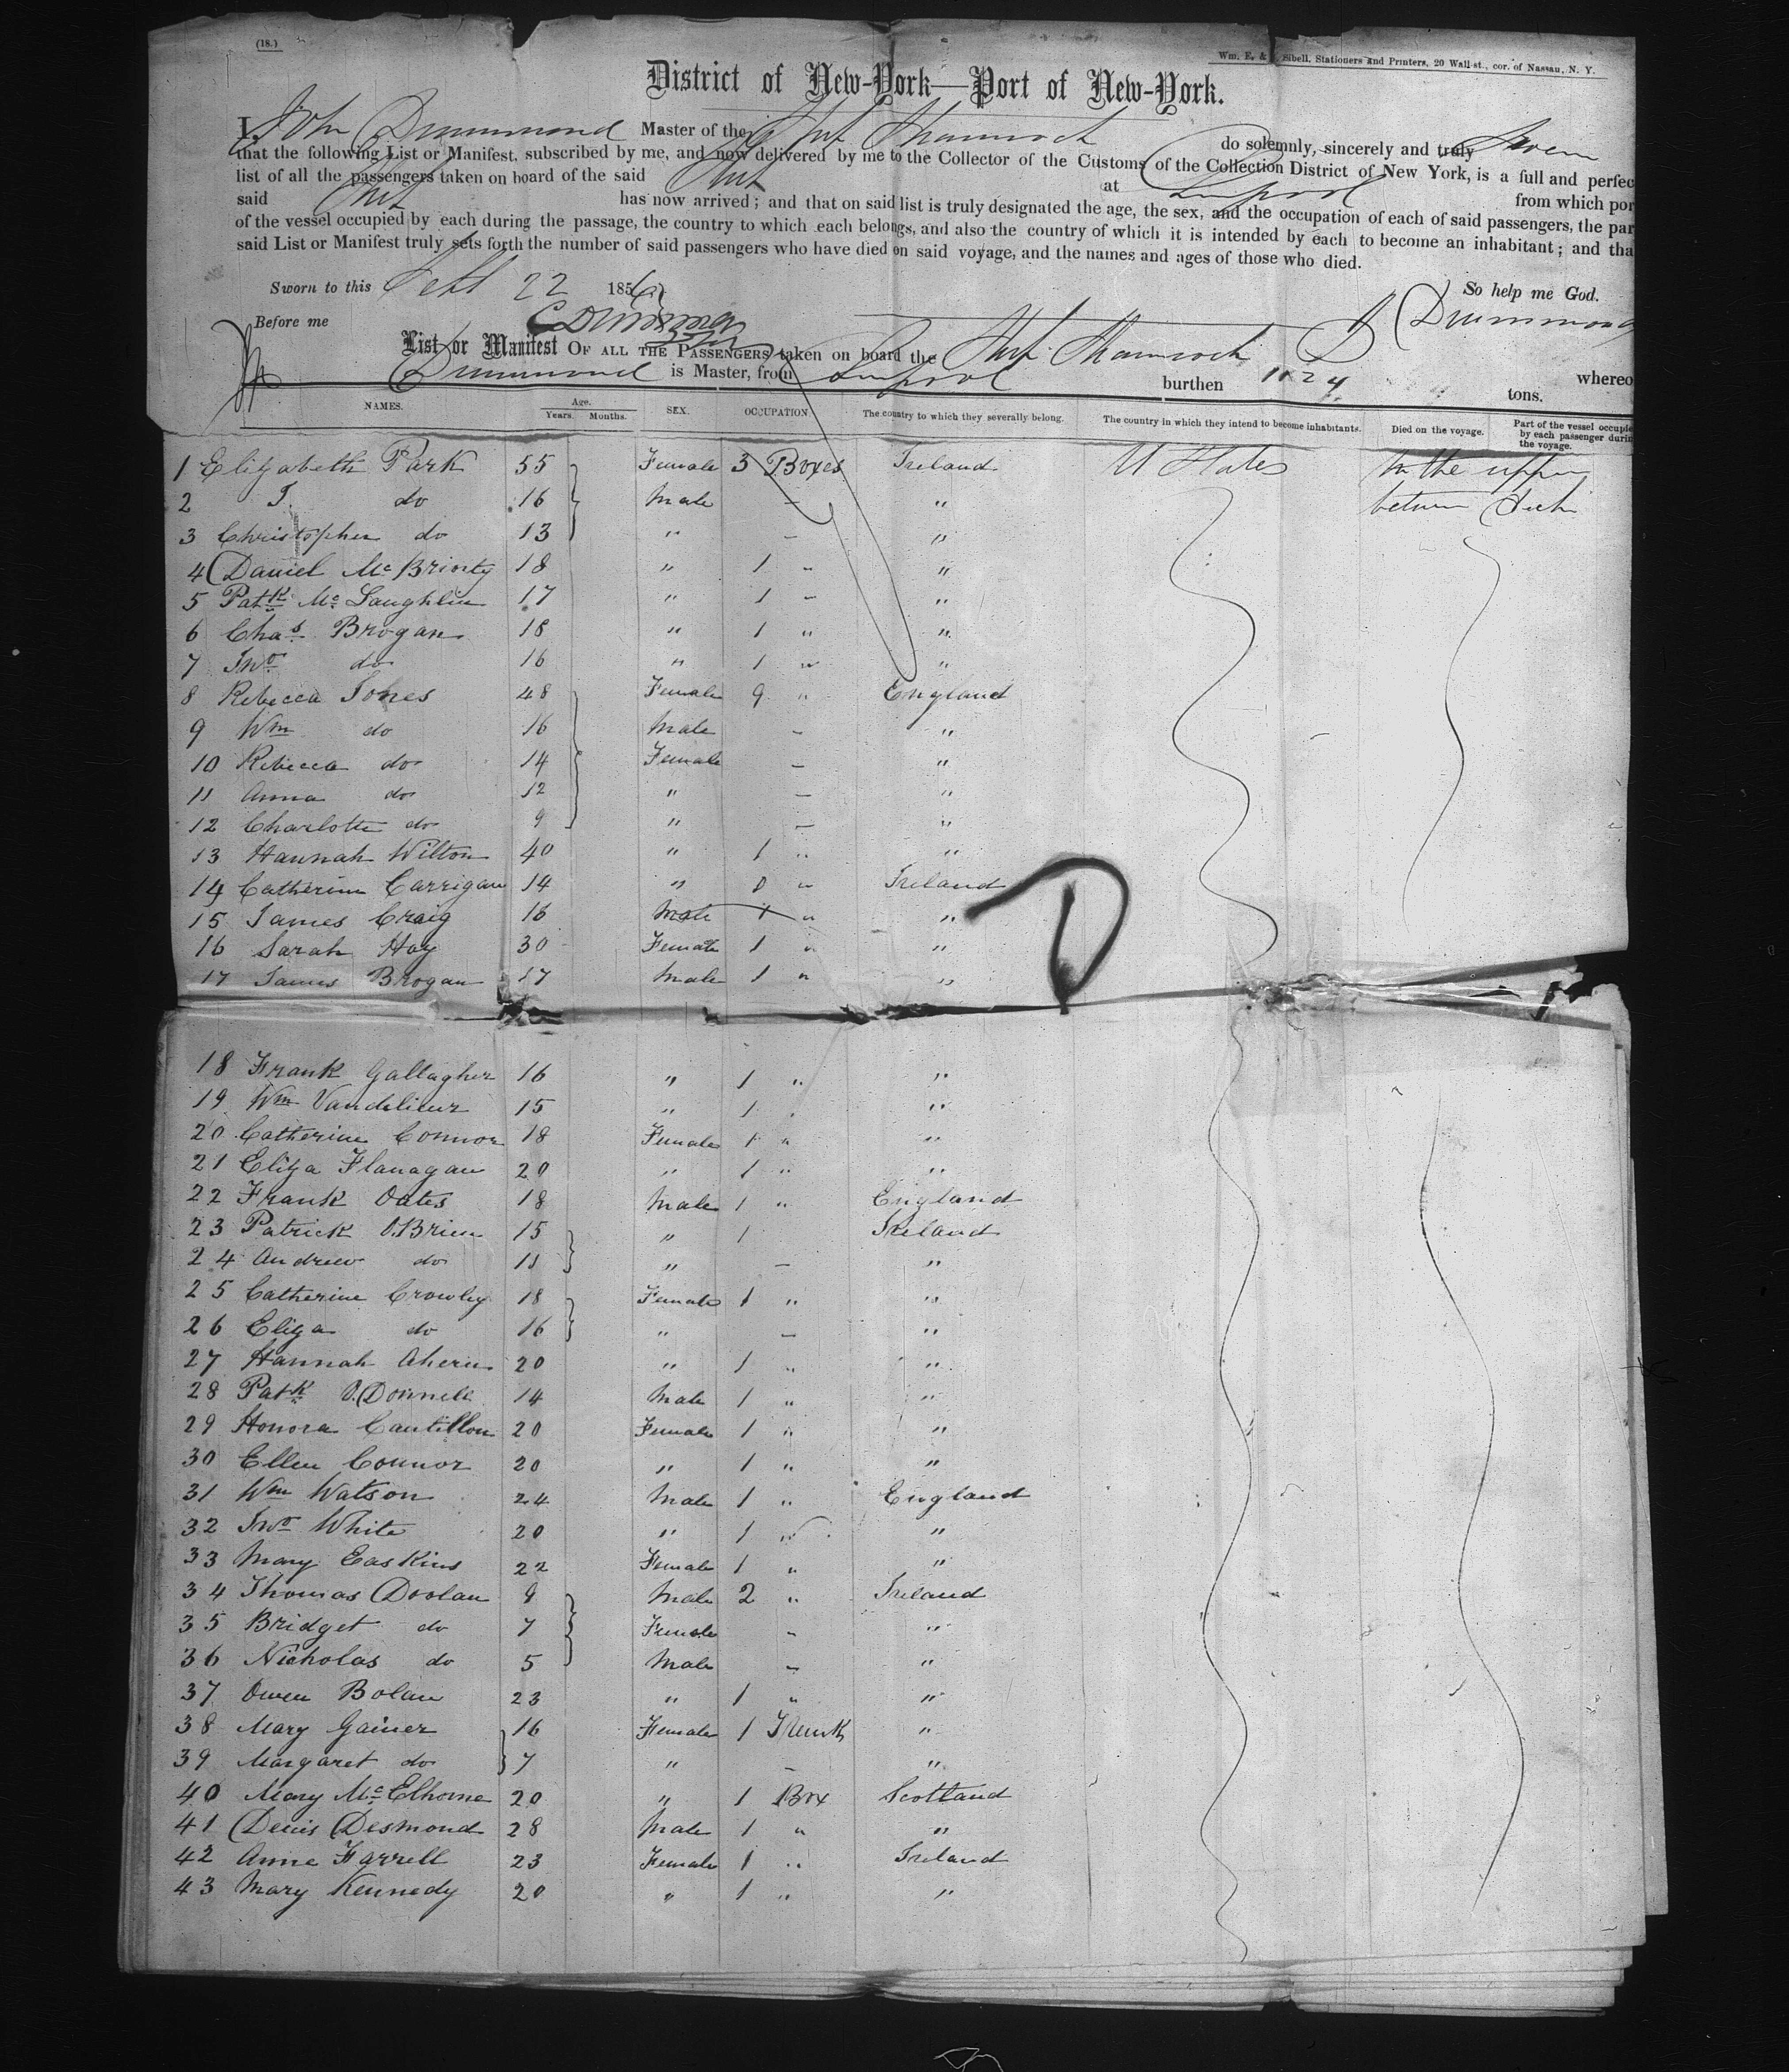 (18.)
Wm. E. & Sibell, Stationers and Printers, 20 Wall-st., cor. of Nassau, N. Y.
District of New-York—Port of New-York.
I, John Drummond Master of the Ship Shamrock do solemnly, sincerely and truly Swear
that the following List or Manifest, subscribed by me, and now delivered by me to the Collector of the Customs of the Collection District of New York, is a full and perfec
list of all the passengers taken on board of the said Ship at Liverpool from which por
said Ship has now arrived; and that on said list is truly designated the age, the sex, and the occupation of each of said passengers, the par
of the vessel occupied by each during the passage, the country to which each belongs, and also the country of which it is intended by each to become an inhabitant; and tha
said List or Manifest truly sets forth the number of said passengers who have died on said voyage, and the names and ages of those who died.
Sworn to this Sept 22 1856 So help me God.
Before me J Drummond
List or Manifest OF ALL THE PASSENGERS taken on board the Ship Shamrock whereo
Drummond is Master, from Liverpool burthen 1124 tons.
NAMES. Age. Years. Months. SEX. OCCUPATION. The country to which they severally belong. The country in which they intend to become inhabitants. Died on the voyage. Part of the vessel occupie by each passenger durin the voyage.
1 Elizabeth Park 55 Female 3 Boxes Ireland U States In the upper
2 J. do 16 Male - " between Deck
3 Christopher do 13 " - "
4 Daniel Mc Brinty 18 " 1 " "
5 Patk Mc Laughlin 17 " 1 " "
6 Chas Brogan 18 " 1 " "
7 Jno do 16 " 1 " "
8 Rebecca Jones 48 Female 9 " England
9 Wm do 16 Male - "
10 Rebecca do 14 Female - "
11 Anna do 12 " - "
12 Charlotte do 9 " - "
13 Hannah Wilton 40 " 1 " "
14 Catherine Carrigan 14 " 1 " Ireland
15 James Craig 16 Male 1 " "
16 Sarah Hay 30 Female 1 " "
17 James Brogan 17 Male 1 " "
18 Frank Gallagher 16 " 1 " "
19 Wm Vandelieur 15 " 1 " "
20 Catherine Connor 18 Female 1 " "
21 Eliza Flanagan 20 " 1 " "
22 Frank Oates 18 Male 1 " England
23 Patrick O.Brien 15 " 1 Ireland
24 Andrew do 11 " - "
25 Catherine Crowley 18 Female 1 " "
26 Eliza do 16 " - "
27 Hannah Ahern 20 " 1 " "
28 Patk O.Donnell 14 Male 1 " "
29 Honora Cantillon 20 Female 1 " "
30 Ellen Connor 20 " 1 " "
31 Wm Watson 24 Male 1 " England
32 Jno White 20 " 1 " "
33 Mary Easkins 22 Female 1 " "
34 Thomas Doolan 9 Male 2 " Ireland
35 Bridget do 7 Female - "
36 Nicholas do 5 Male - "
37 Owen Bolan 23 " 1 " "
38 Mary Gainer 16 Female 1 Trunk "
39 Margaret do 7 " - "
40 Mary Mc Elhorne 20 " 1 Box Scotland
41 Denis Desmond 28 Male 1 " "
42 Anne Farrell 23 Female 1 " Ireland
43 Mary Kennedy 20 " 1 " "